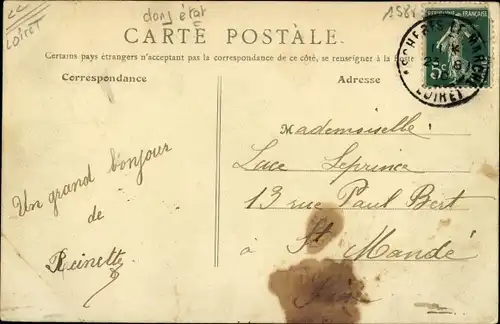 LOIRET
dans état
1581
CARTE POSTALE.
RÉPUBLIQUE FRANÇAISE
5c
LOIRET
Certains pays étrangers n'acceptant pas la correspondance de ce côté, se renseigner à la Poste
Correspondance
Adresse
Mademoiselle
Luce Leprince
13 rue Paul Bert
à St Mandé
Seine
Un grand bonjour
de
Reinette